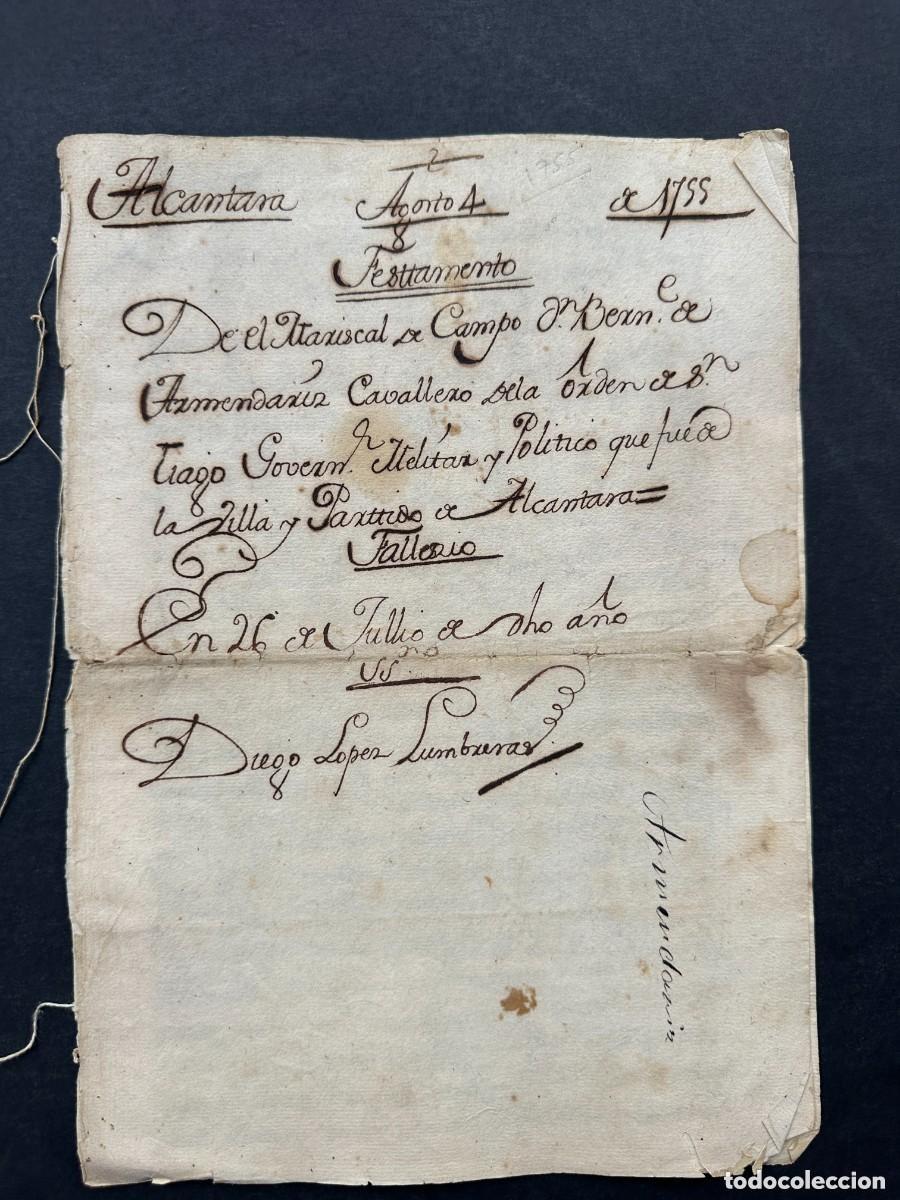 2
1755
Alcantara Agosto 4 de 1755
Testtamento
De el Mariscal de Campo Dn. Bern.e de
Armendariz Cavallero dela Orden de Sn.
tiago Governr. Melitar y Politico que fue de
la Villa y Parttido de Alcantara =
Fallezio
En 26 de Jullio de dho año
SSno.
Diego Lopez Lumbreras
Armendariz
todocoleccion